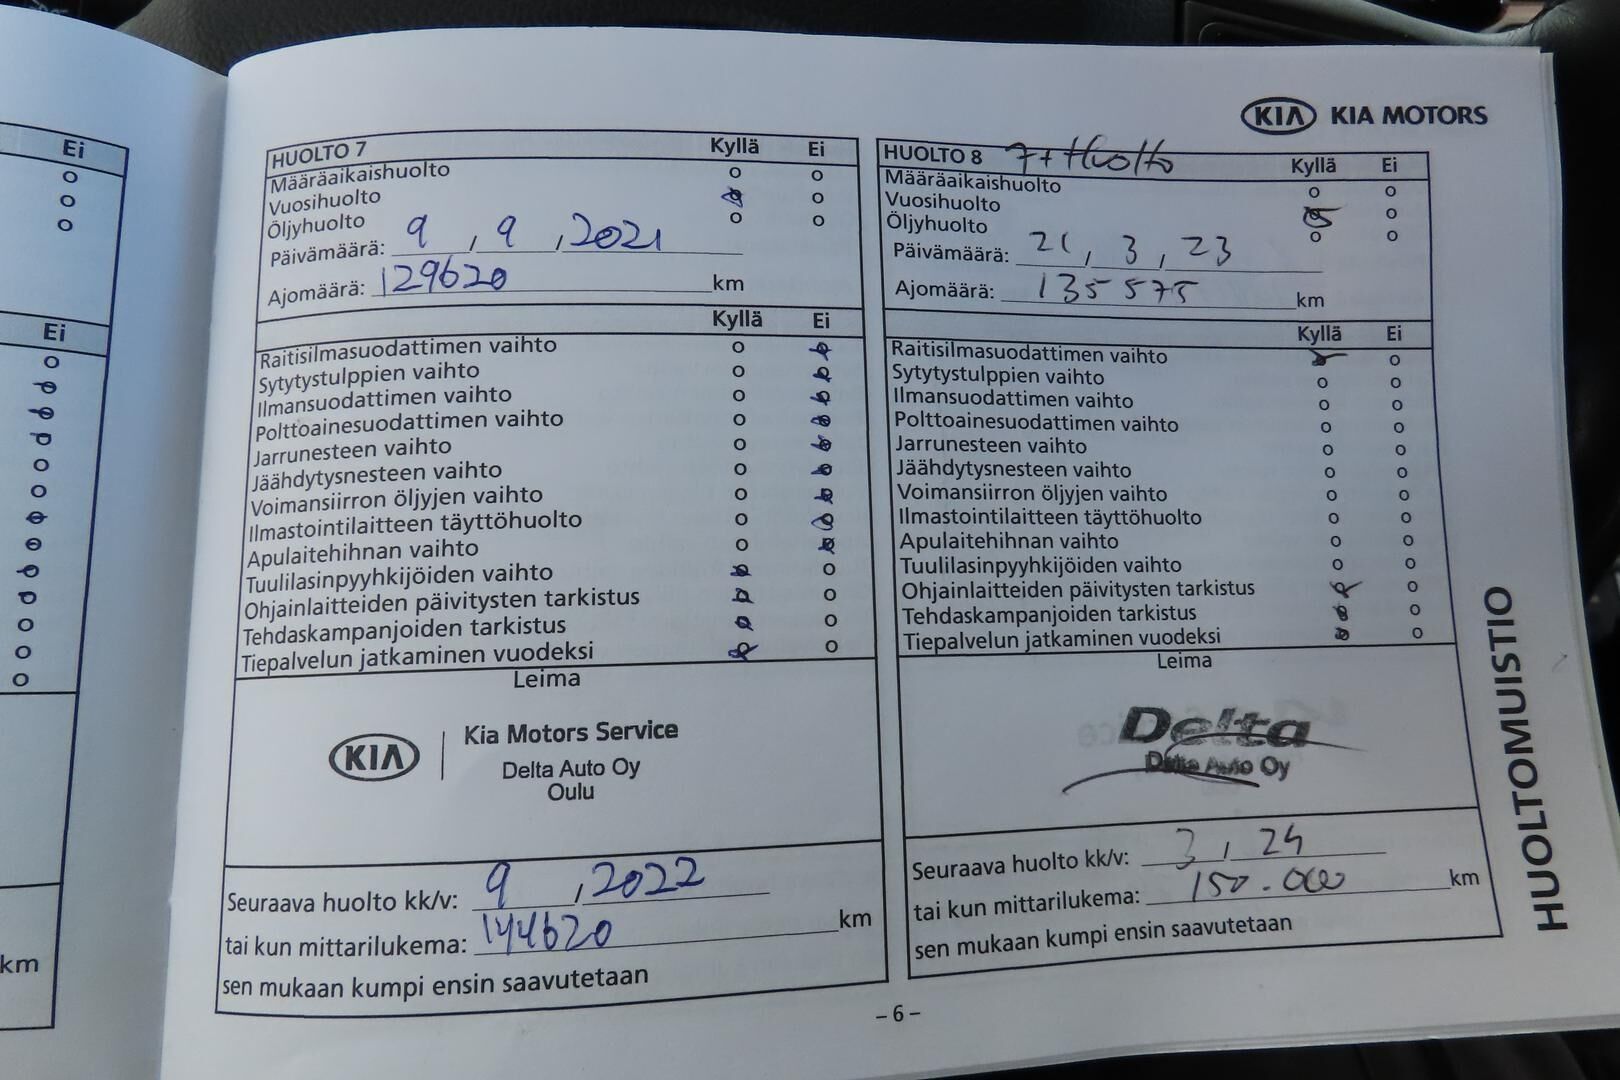 Ei
o
o
o
Ei
o
o
o
o
o
o
o
o
o
o
o
o
o
km
HUOLTO 7 Kyllä Ei
Määräaikaishuolto o o
Vuosihuolto o o
Öljyhuolto o o
Päivämäärä: 9 , 9 , 2021
Ajomäärä: 129620 km
Kyllä Ei
Raitisilmasuodattimen vaihto o o
Sytytystulppien vaihto o o
Ilmansuodattimen vaihto o o
Polttoainesuodattimen vaihto o o
Jarrunesteen vaihto o o
Jäähdytysnesteen vaihto o o
Voimansiirron öljyjen vaihto o o
Ilmastointilaitteen täyttöhuolto o o
Apulaitehihnan vaihto o o
Tuulilasinpyyhkijöiden vaihto o o
Ohjainlaitteiden päivitysten tarkistus o o
Tehdaskampanjoiden tarkistus o o
Tiepalvelun jatkaminen vuodeksi o o
Leima
KIA Kia Motors Service
Delta Auto Oy
Oulu
Seuraava huolto kk/v: 9 , 2022
tai kun mittarilukema: 144620 km
sen mukaan kumpi ensin saavutetaan
KIA KIA MOTORS
HUOLTO 8 7+ Huolto Kyllä Ei
Määräaikaishuolto o o
Vuosihuolto o o
Öljyhuolto o o
Päivämäärä: 21 , 3 , 23
Ajomäärä: 135 575 km
Kyllä Ei
Raitisilmasuodattimen vaihto o o
Sytytystulppien vaihto o o
Ilmansuodattimen vaihto o o
Polttoainesuodattimen vaihto o o
Jarrunesteen vaihto o o
Jäähdytysnesteen vaihto o o
Voimansiirron öljyjen vaihto o o
Ilmastointilaitteen täyttöhuolto o o
Apulaitehihnan vaihto o o
Tuulilasinpyyhkijöiden vaihto o o
Ohjainlaitteiden päivitysten tarkistus o o
Tehdaskampanjoiden tarkistus o o
Tiepalvelun jatkaminen vuodeksi o o
Leima
Delta
Delta Auto Oy
Seuraava huolto kk/v: 3 , 24
tai kun mittarilukema: 150.000 km
sen mukaan kumpi ensin saavutetaan
HUOLTOMUISTIO
– 6 –